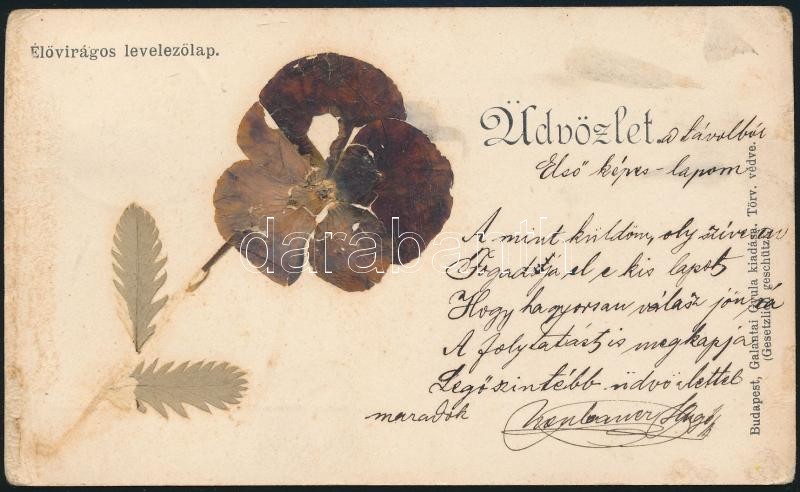 Élővirágos levelezőlap.
Üdvözlet a távolból
Első képes-lapom
A mint küldöm, oly szívesen
Fogadja el e kis lapot
Hogy ha gyorsan válasz jön rá
A folytatást is megkapja
Legőszintébb üdvözlettel
maradok Hugó
Budapest, Galantai Gyula kiadása. Törv. védve.
(Gesetzlich geschützt.)
darabanth